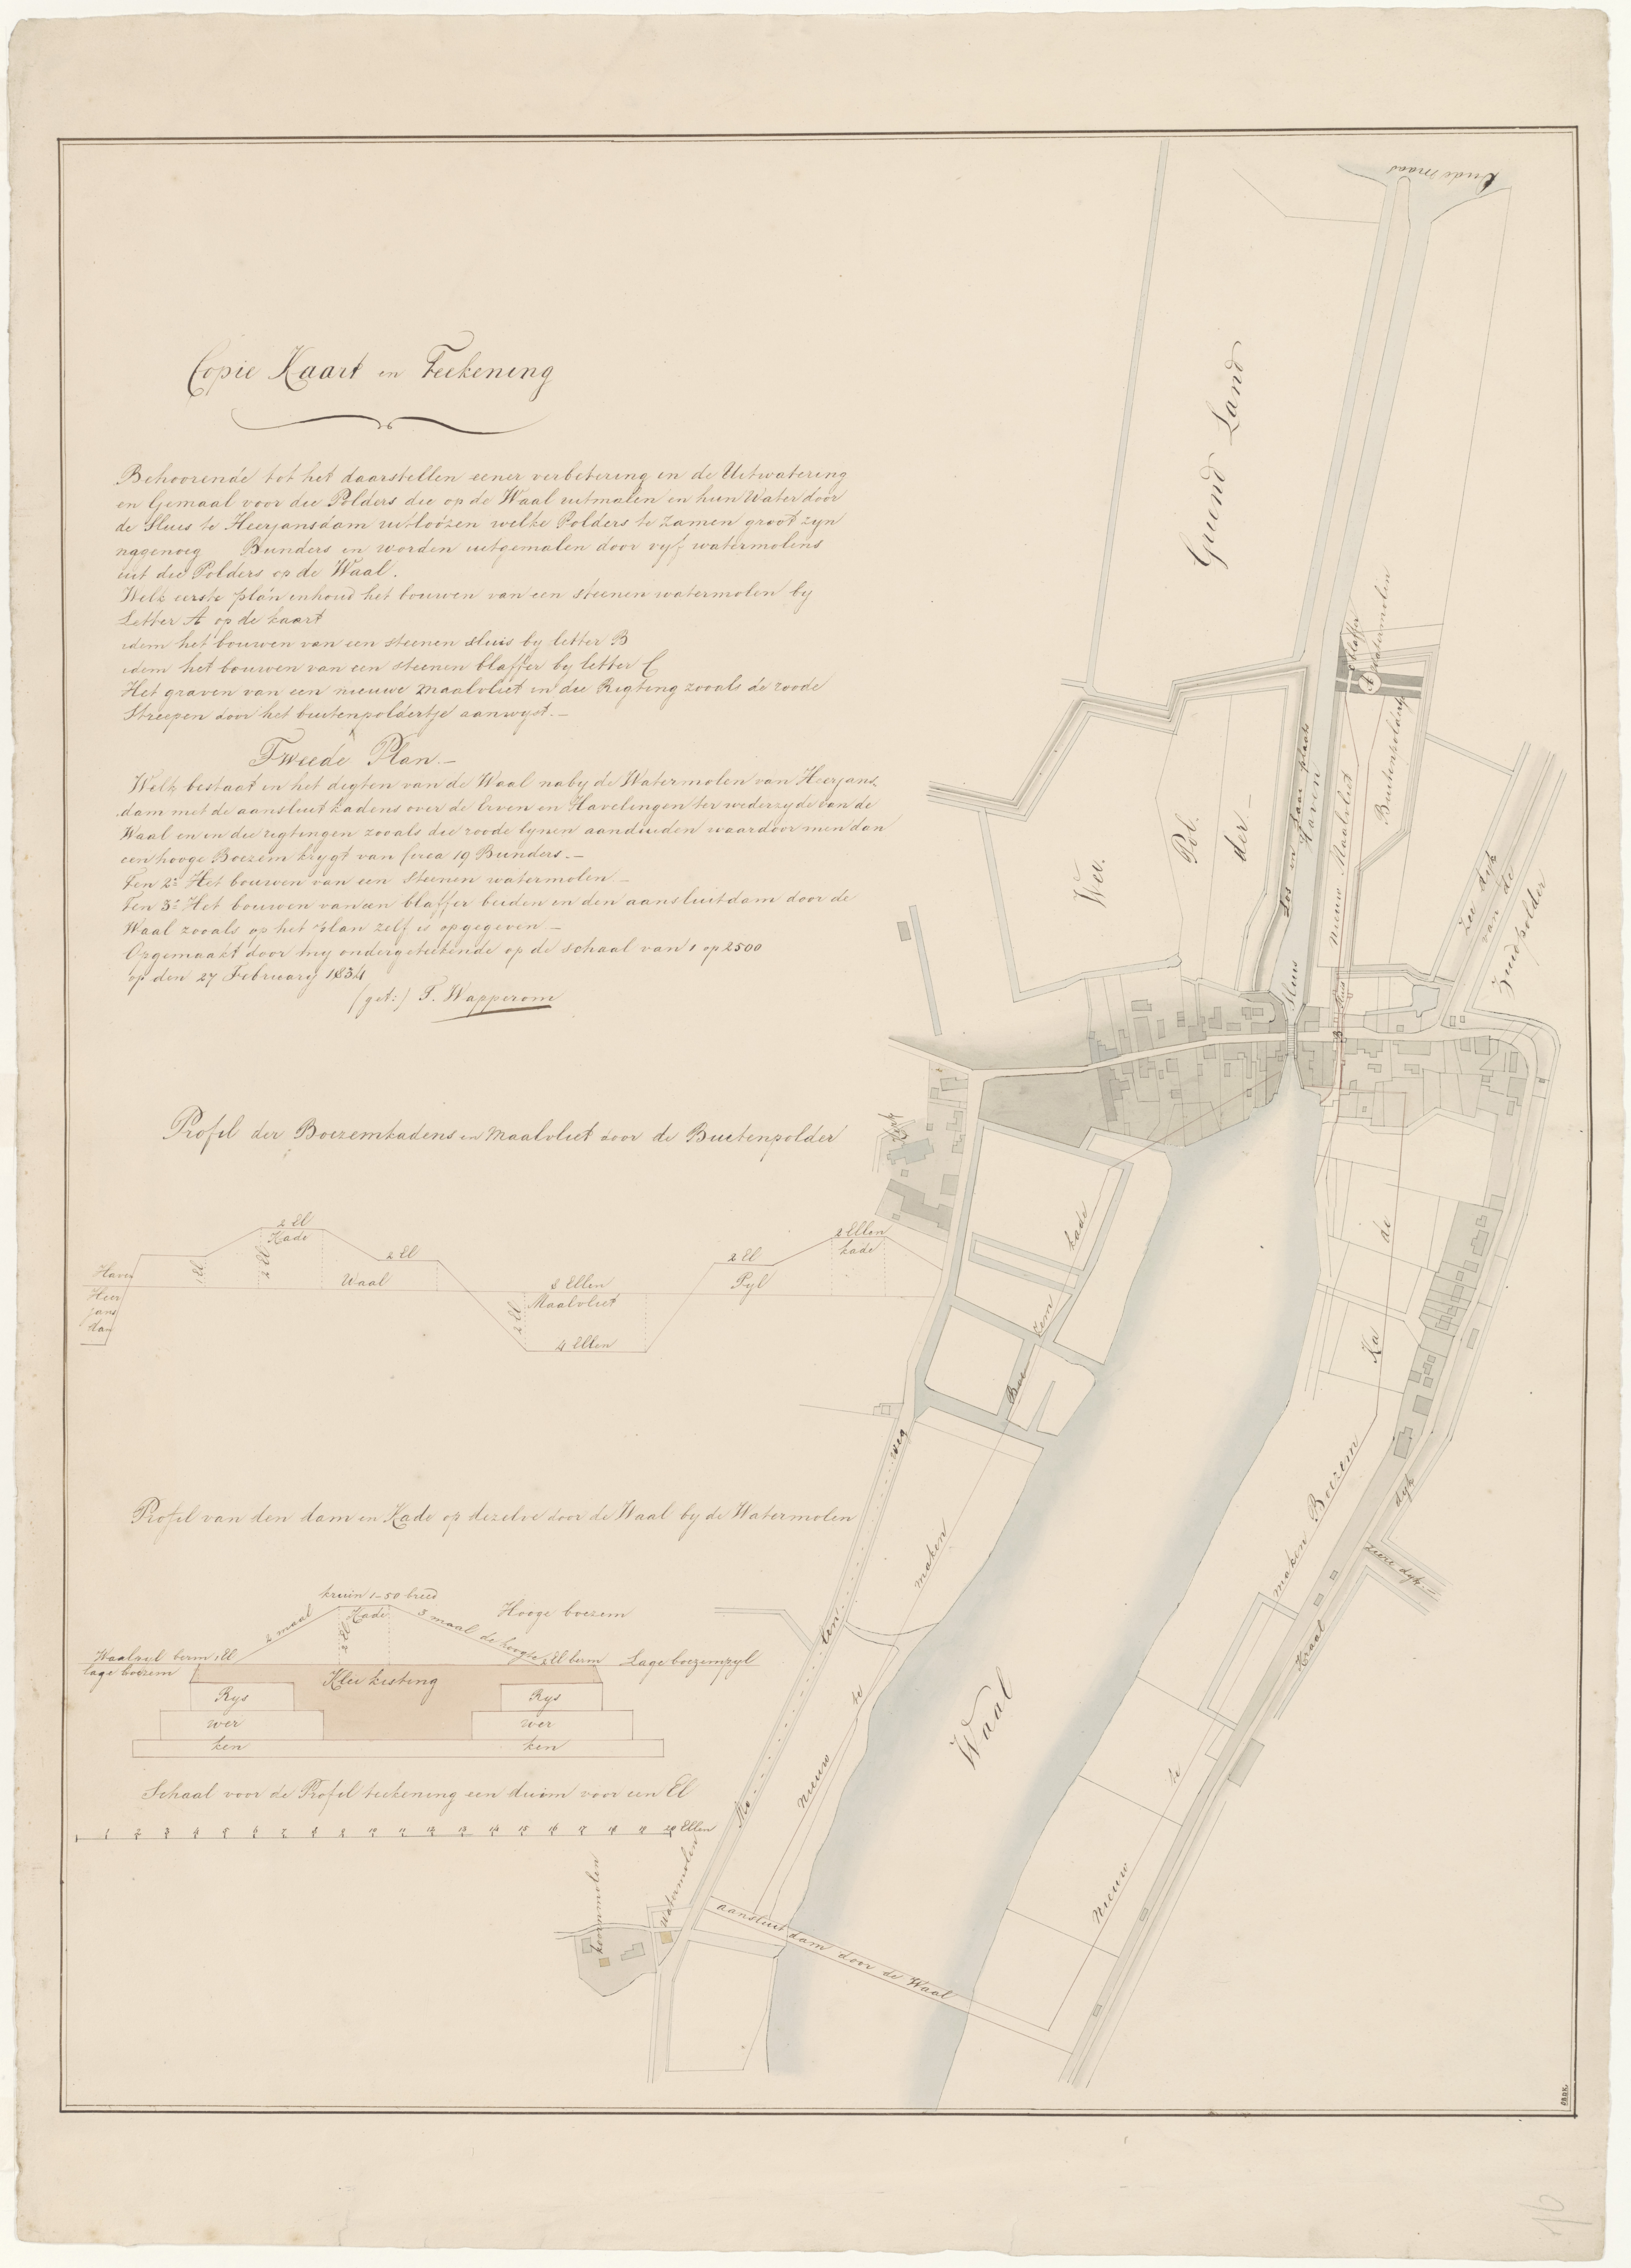 Copie Kaart en Teekening
Behoorende tot het daarstellen eener verbetering in de Uitwatering
en Gemaal voor die Polders die op de Waal uitmalen en hun Water door
de Sluis te Heerjansdam uitloozen welke Polders te zamen groot zyn
nagenoeg Bunders en worden uitgemalen door vyf watermolens
uit die Polders op de Waal.
Welk eerste plan inhoud het bouwen van een steenen watermolen by
Letter A op de kaart
idem het bouwen van een steenen sluis by letter B
idem het bouwen van een steenen blaffer by letter C
Het graven van een nieuwe Maalvliet in die Rigting zooals de roode
Streepen door het buitenpoldertje aanwyst.—
Tweede Plan.—
Welk bestaat in het digten van de Waal naby de Watermolen van Heerjans.
dam met de aansluitkadens over de Erven en Havelingen ter wederzyde van de
Waal en in die rigtingen zooals die roode lynen aanduiden waardoor men dan
een hooge Boezem krygt van Circa 19 Bunders.—
Ten 2e Het bouwen van een steenen watermolen —
Ten 3e Het bouwen van een blaffer beiden in den aansluitdam door de
Waal zooals op het plan zelf is opgegeven —
Opgemaakt door my ondergeteekende op de schaal van 1 op 2500
op den 27 February 1834
(get:) T. Wapperom
Profil der Boezemkadens en Maalvliet door de Buitenpolder
2 El
Kade
1 El
2 El
2 El
Waal
Haven
Heer
jans
dam
8 Ellen
Maalvliet
2 El
4 Ellen
2 El
Pyl
2 Ellen
kade
Profil van den dam en Kade op dezelve door de Waal by de Watermolen
kruin 1-50 breed
Kade
2 maal
2 El
3 maal de hoogte
Hooge boezem
Waalpyl berm 1 El
lage boezem
1 El berm
Lage boezempyl
Klei kisting
Rys
wer
ken
Rys
wer
ken
Schaal voor de Profil teekening een duim voor een El
1 2 3 4 5 6 7 8 9 10 11 12 13 14 15 16 17 18 19 20 Ellen
Oude maas
Griend Land
Blaffer
A
Watermolen
Buitenpoldertje
Los en Laar plaats
Haven
nieuw Maalvliet
Zee dyk
van de
Zuidpolder
Wee.
Pol.
der.—
Sluis
B
Sluis
Kerk
kade
zem
Boe
maken
te
nieuw
weg
len
Mo
Waal
de
Ka
Boezem
maken
te
Nieuw
dyk
Zeere dyk
Straat
koornmolen
Watermolen
aansluit dam door de Waal
OBDK
16